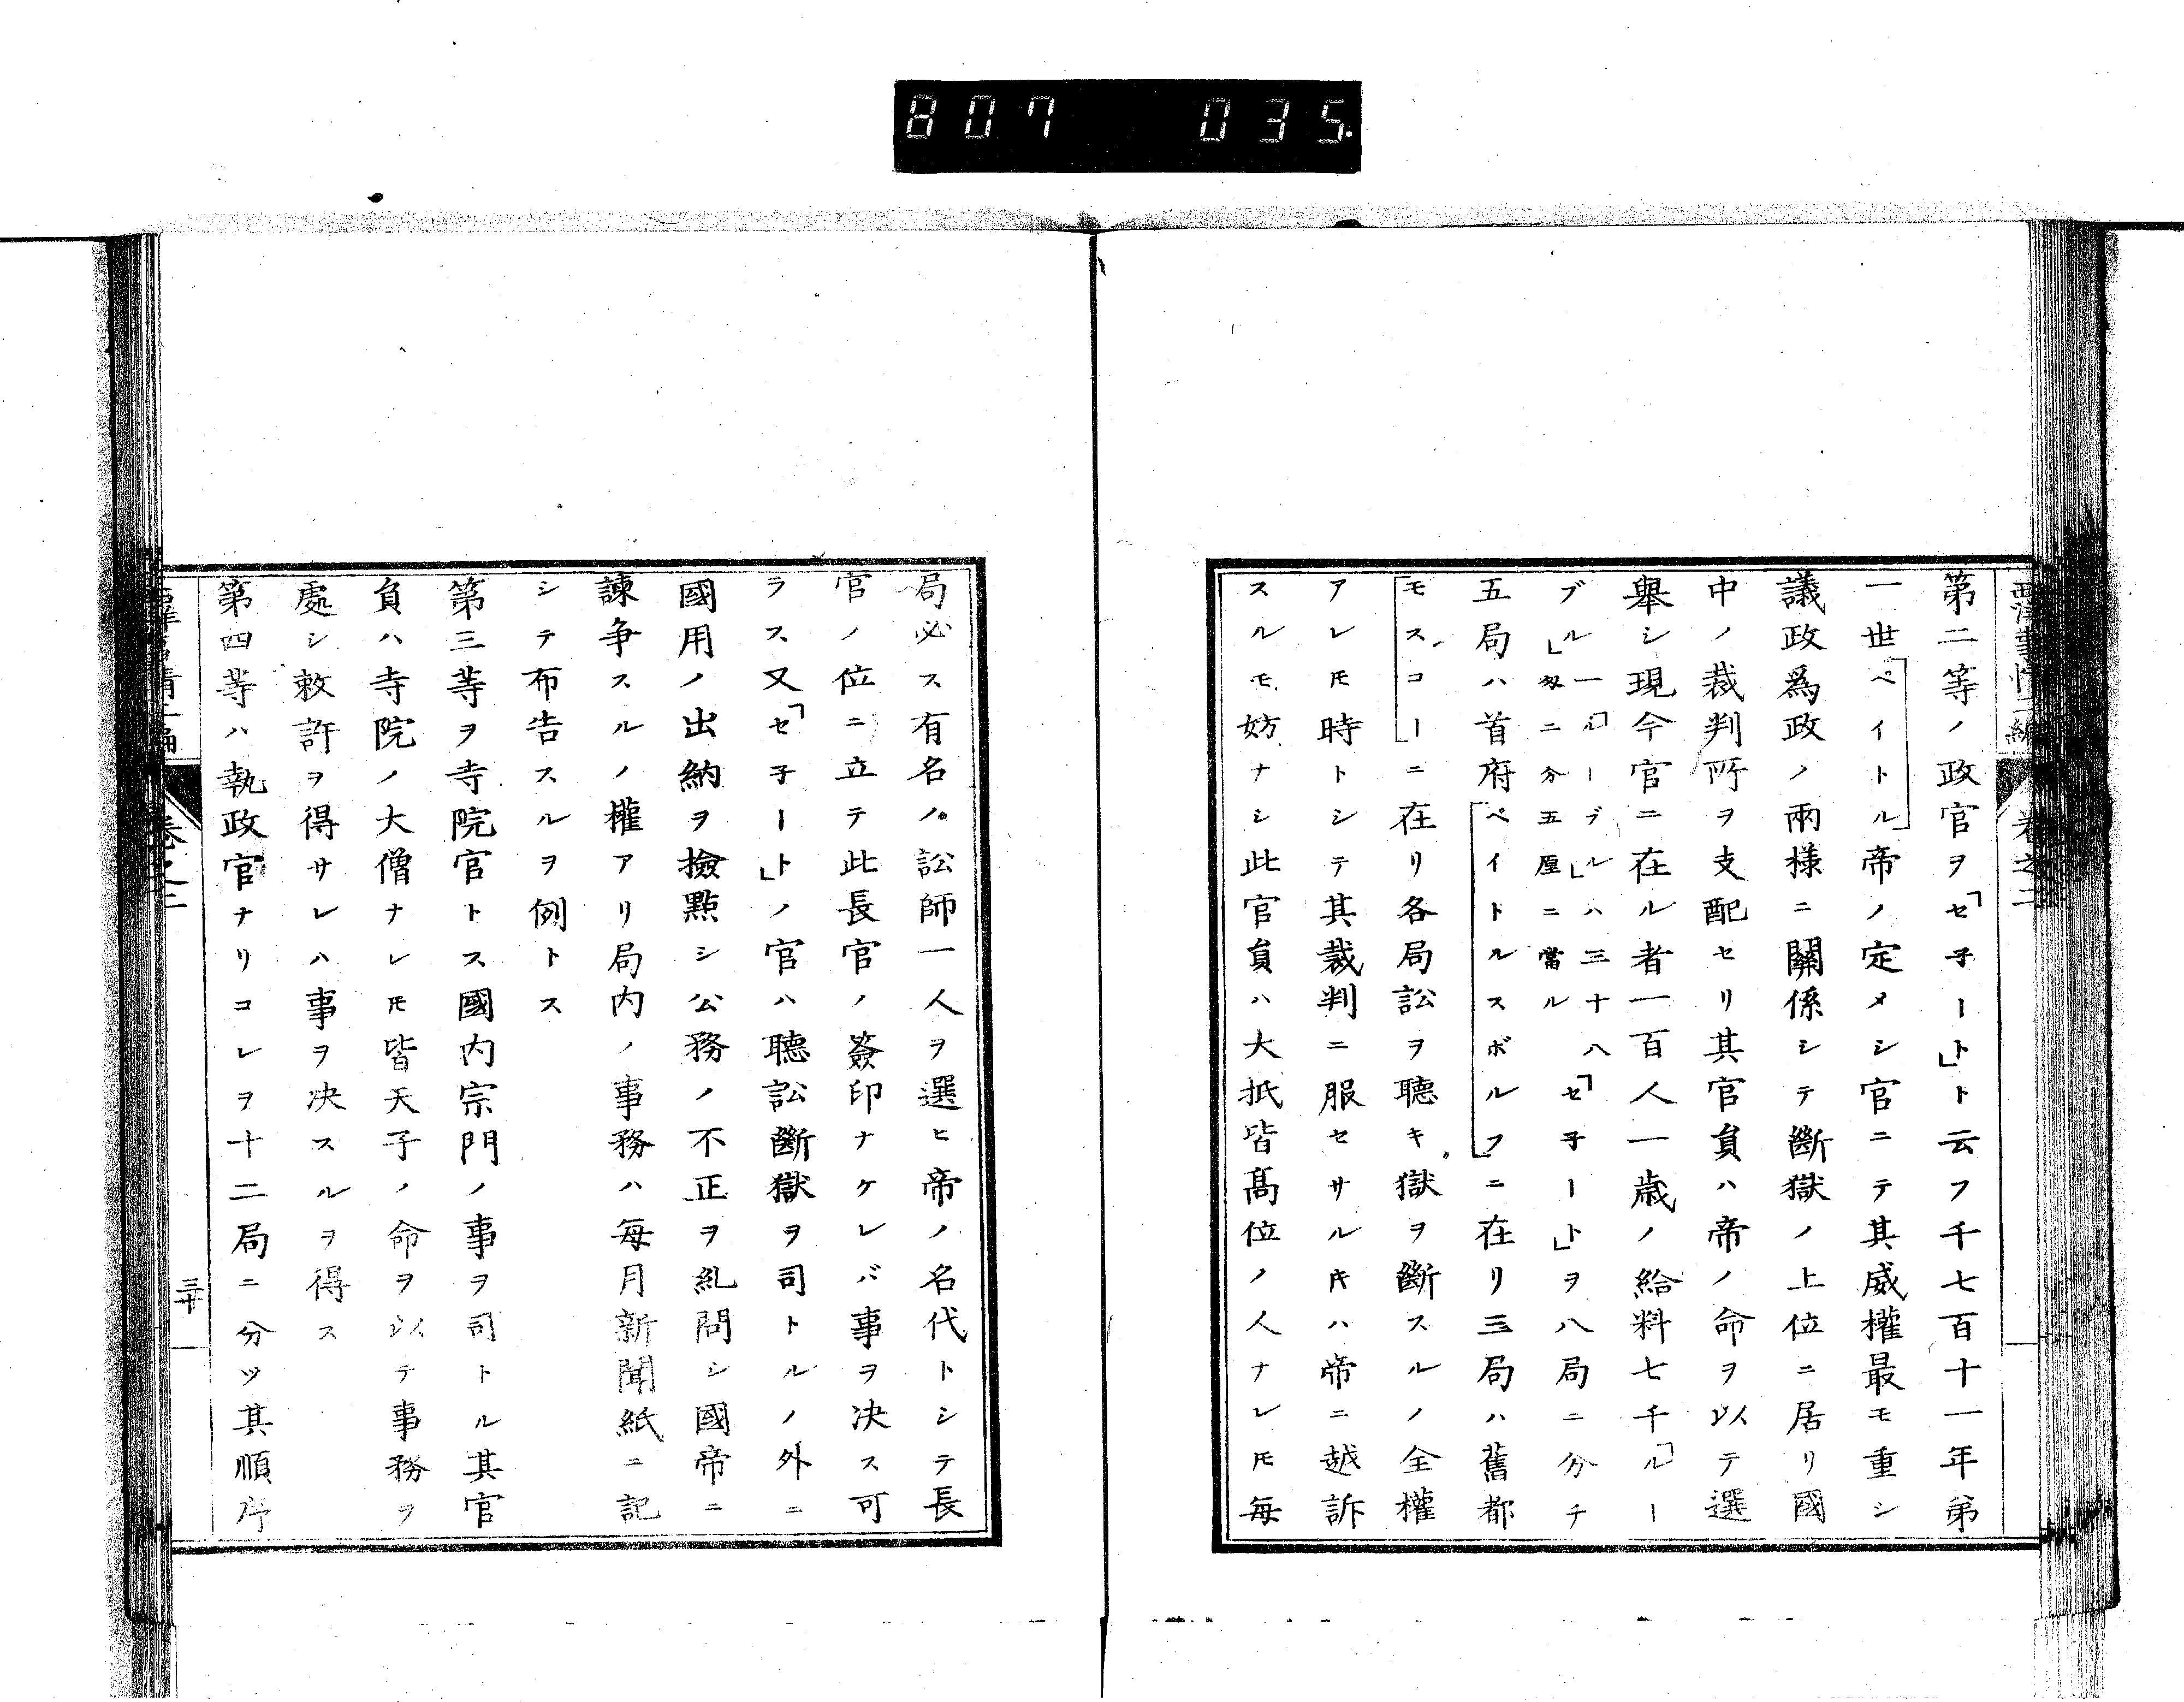 807 035
西洋事情二編 卷之二
第二等ノ政官ヲ「セ子ート」ト云フ千七百十一年第
一世ペイトル帝ノ定メシ官ニテ其威權最モ重シ
議政爲政ノ兩様ニ關係シテ斷獄ノ上位ニ居リ國
中ノ裁判所ヲ支配セリ其官負ハ帝ノ命ヲ以テ選
舉シ現今官ニ在ル者一百人一歳ノ給料七千「ルー
ブル」一「ルーブル」ハ三十八匁二分五厘ニ當ル「セ子ート」ヲ八局ニ分チ
五局ハ首府ペイトルスボルフニ在リ三局ハ舊都
モスコーニ在リ各局訟ヲ聽キ獄ヲ斷スルノ全權
アレ𪜈時トシテ其裁判ニ服セサルキハ帝ニ越訴
スルモ妨ナシ此官負ハ大抵皆髙位ノ人ナレ𪜈毎
局必ス有名ノ訟師一人ヲ選ヒ帝ノ名代トシテ長
官ノ位ニ立テ此長官ノ簽印ナケレバ事ヲ決ス可
ラス又「セ子ート」ノ官ハ聽訟斷獄ヲ司トルノ外ニ
國用ノ出納ヲ撿點シ公務ノ不正ヲ糺問シ國帝ニ
諫争スルノ權アリ局内ノ事務ハ毎月新聞紙ニ記
シテ布告スルヲ例トス
第三等ヲ寺院官トス國内宗門ノ事ヲ司トル其官
負ハ寺院ノ大僧ナレ𪜈皆天子ノ命ヲ以テ事務ヲ
處シ敕許ヲ得サレハ事ヲ決スルヲ得ス
第四等ハ執政官ナリコレヲ十二局ニ分ツ其順序
西洋事情二編 卷之二 三十一